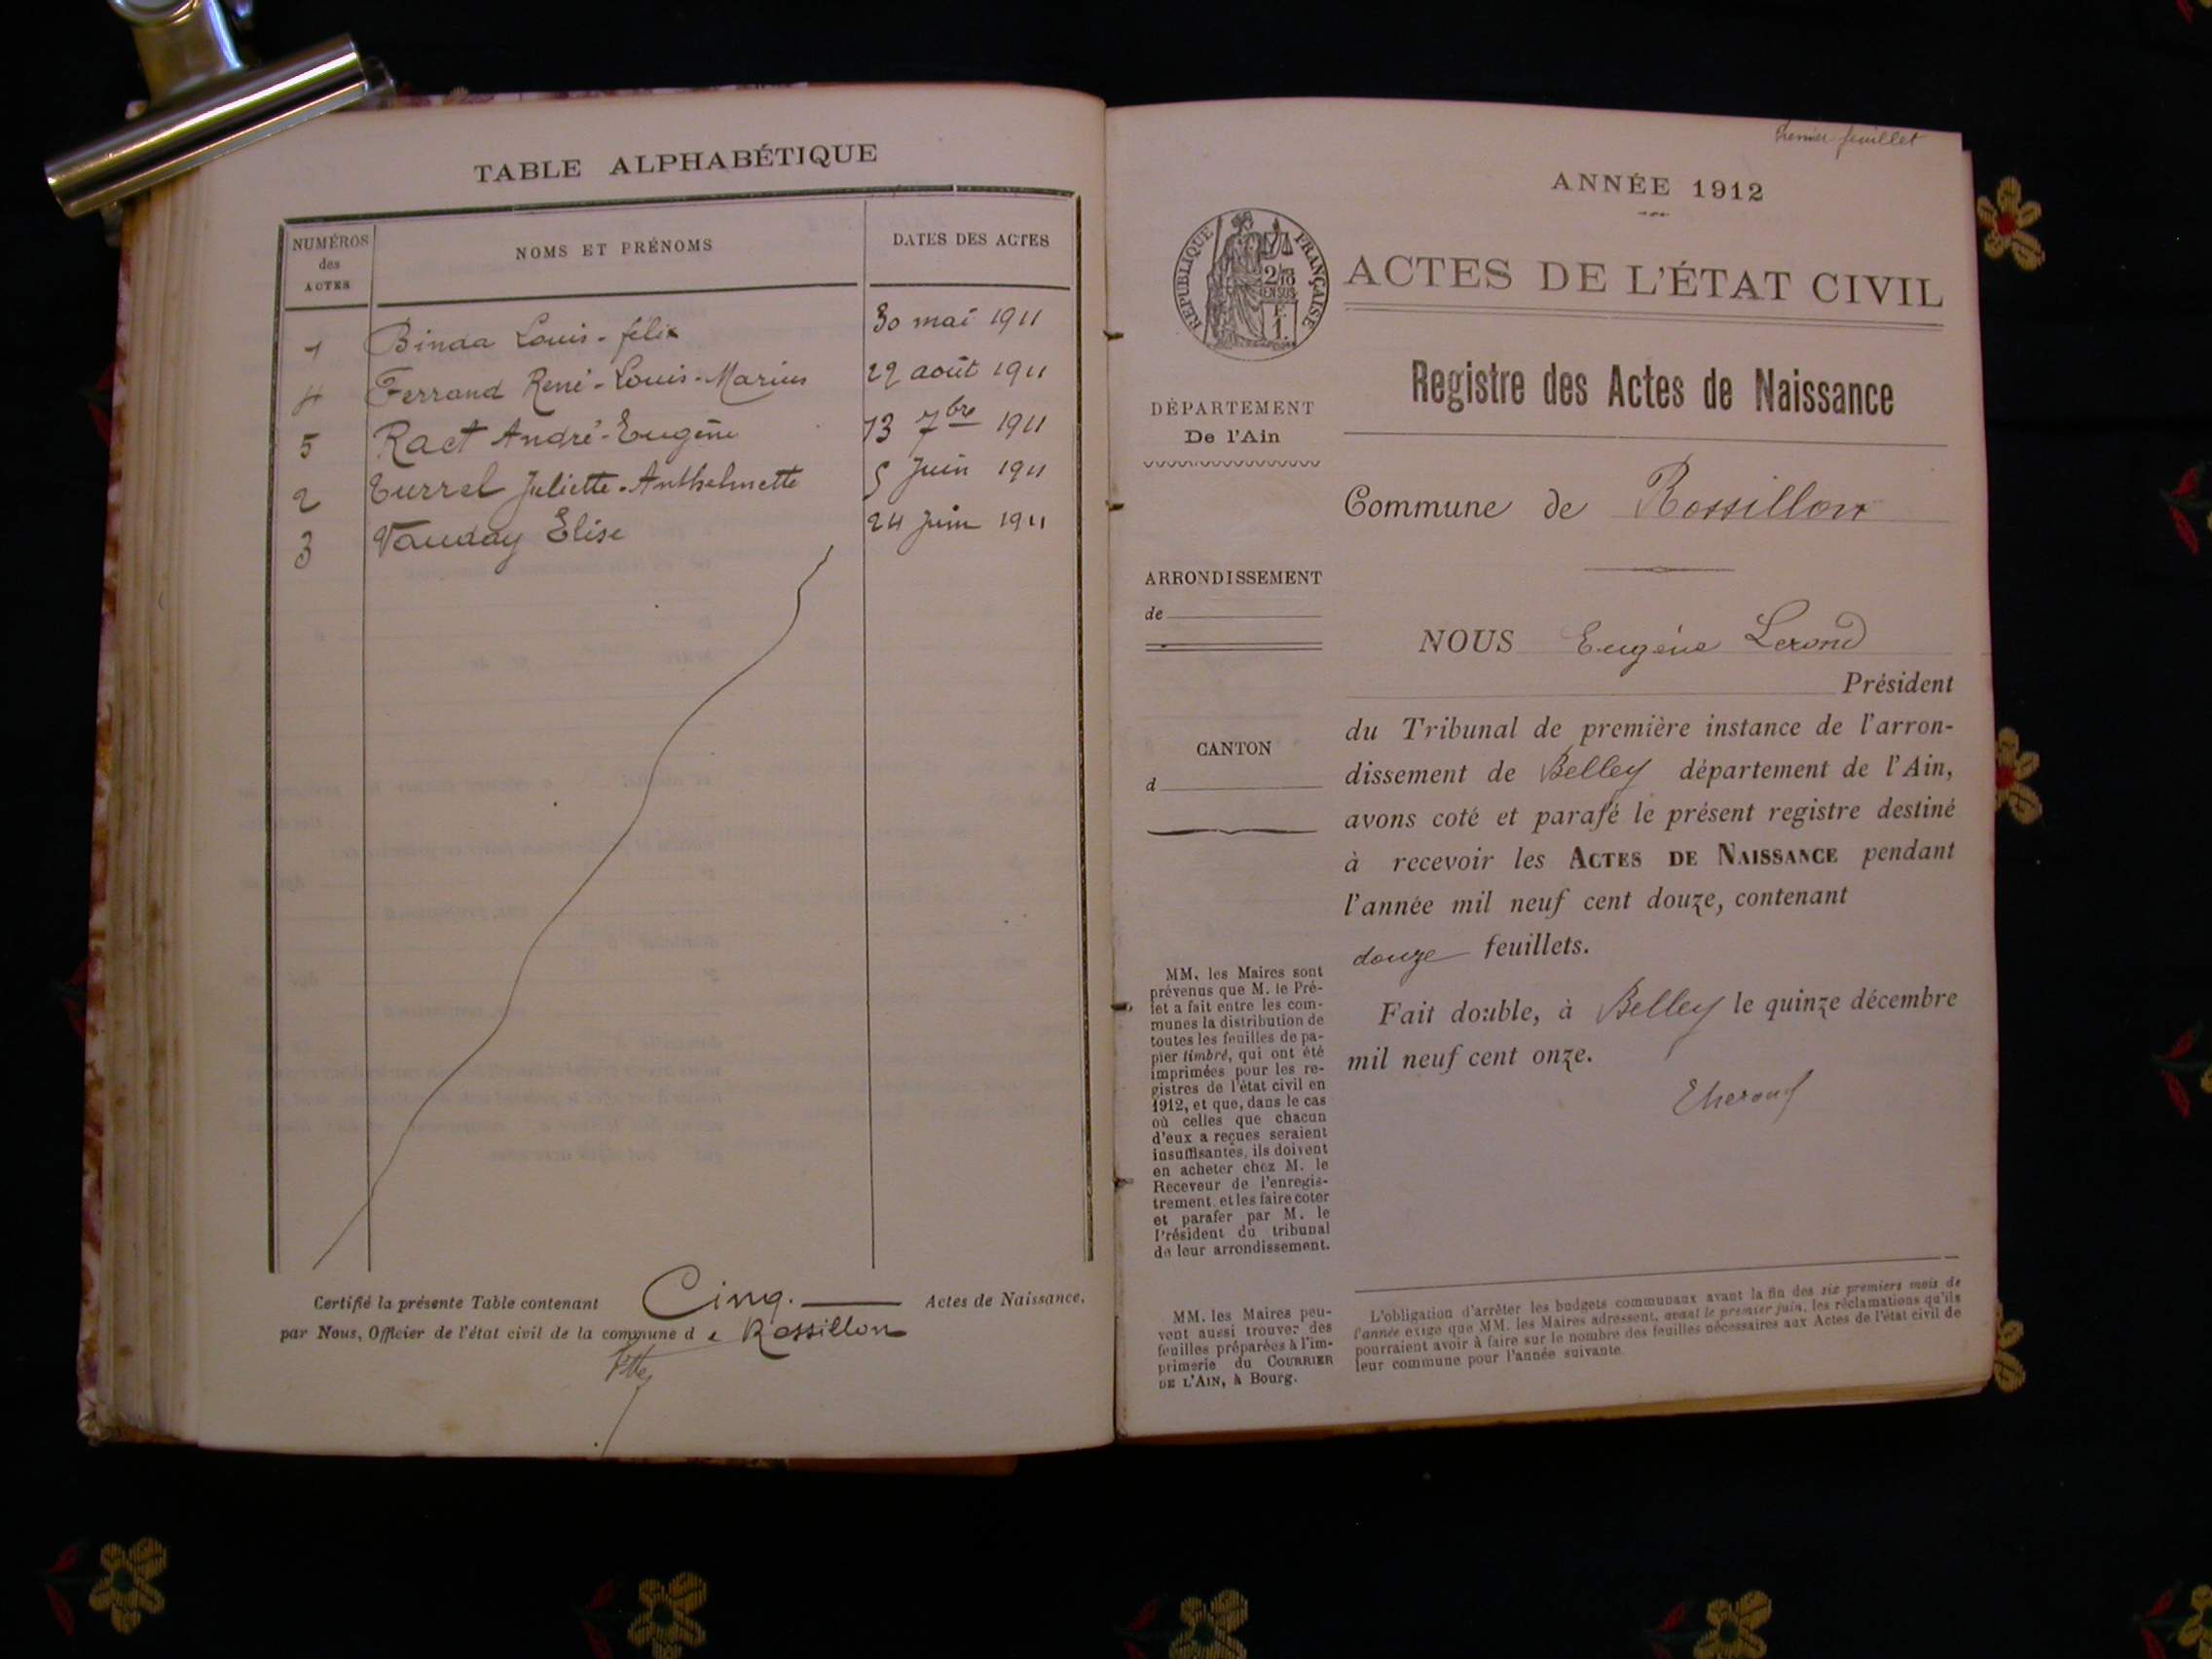 TABLE ALPHABÉTIQUE
NUMÉROS des ACTES
NOMS ET PRÉNOMS
DATES DES ACTES
1 Binda Louis-félix 30 mai 1911
4 Ferrand René-Louis-Marius 29 août 1911
5 Ract André-Eugène 13 7bre 1911
2 Turrel Juliette-Anthelmette 5 Juin 1911
3 Vauday Elise 24 Juin 1911
Certifié la présente Table contenant Cinq. Actes de Naissance,
par Nous, Officier de l'état civil de la commune de Rossillon
Premier feuillet
ANNÉE 1912
RÉPUBLIQUE FRANÇAISE
2/10
EN SUS
F.
1.
ACTES DE L'ÉTAT CIVIL
Registre des Actes de Naissance
DÉPARTEMENT
De l'Ain
Commune de Rossillon
ARRONDISSEMENT
de
NOUS Eugène Lerond
Président
CANTON
d
du Tribunal de première instance de l'arron-
dissement de Belley département de l'Ain,
avons coté et parafé le présent registre destiné
à recevoir les ACTES DE NAISSANCE pendant
l'année mil neuf cent douze, contenant
douze feuillets.
Fait double, à Belley le quinze décembre
mil neuf cent onze.
MM. les Maires sont
prévenus que M. le Pré-
fet a fait entre les com-
munes la distribution de
toutes les feuilles de pa-
pier timbré, qui ont été
imprimées pour les re-
gistres de l'état civil en
1912, et que, dans le cas
où celles que chacun
d'eux a reçues seraient
insuffisantes, ils doivent
en acheter chez M. le
Receveur de l'enregis-
trement et les faire coter
et parafer par M. le
Président du tribunal
de leur arrondissement.
MM. les Maires peu-
vent aussi trouver des
feuilles préparées à l'im-
primerie du COURRIER
DE L'AIN, à Bourg.
L'obligation d'arrêter les budgets communaux avant la fin des six premiers mois de
l'année exige que MM. les Maires adressent, avant le premier juin, les réclamations qu'ils
pourraient avoir à faire sur le nombre des feuilles nécessaires aux Actes de l'état civil de
leur commune pour l'année suivante.